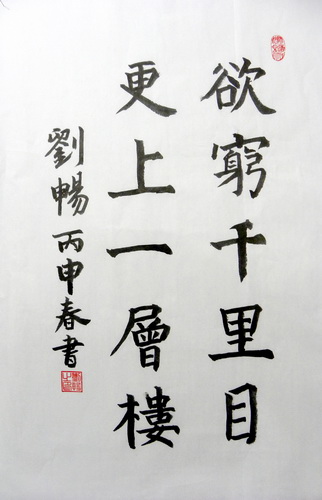 欲窮千里目
更上一層樓
劉暢丙申春書